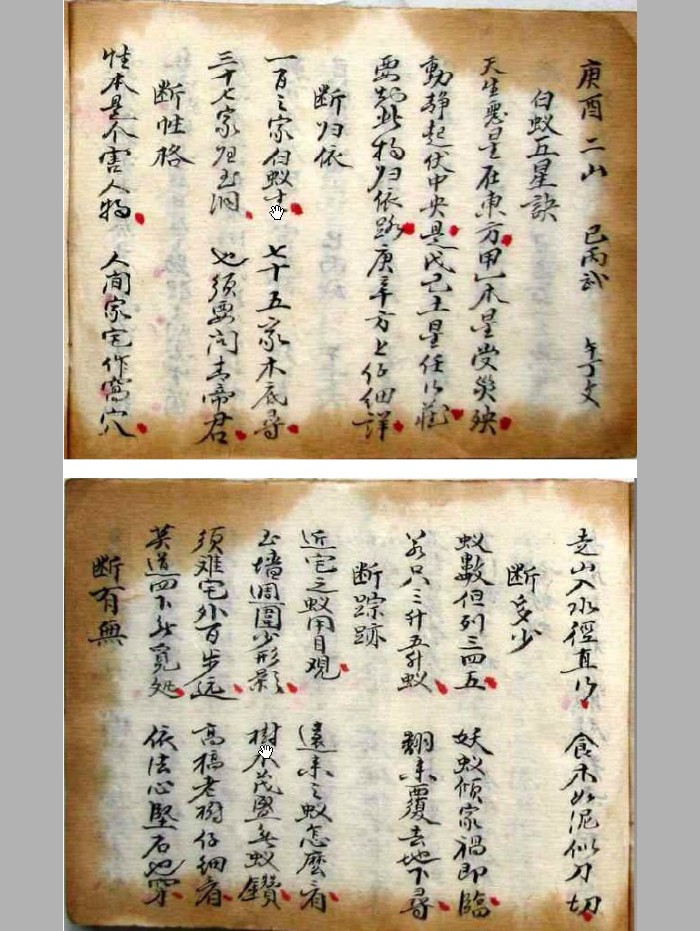 庚酉二山 巳丙武 午丁文
白蚁五星訣
天生惡星在東方甲乙木星受災殃
動静起伏中央是戊己土星任
要知此物归依路庚辛方上仔细詳
断归依
一百之家白蚁 七十五家木底尋
三十七家 也须要问 帝君
断性格
性本是个害人物 人间家宅作窩穴
走山入水徑直 食木如泥似刀切
断多少
蚁數但列三四五 妖蚁倾家禍即臨
若只三升五升蚁 翻来覆去地下尋
断踪跡
近宅之蚁用目观 遠来之蚁怎麽看
墙周圍少形影 樹木茂盛 蚁鑽
须难宅外百步远 高橋老樹仔细看
莫道四下 覓处 依法心堅石也穿
断有無